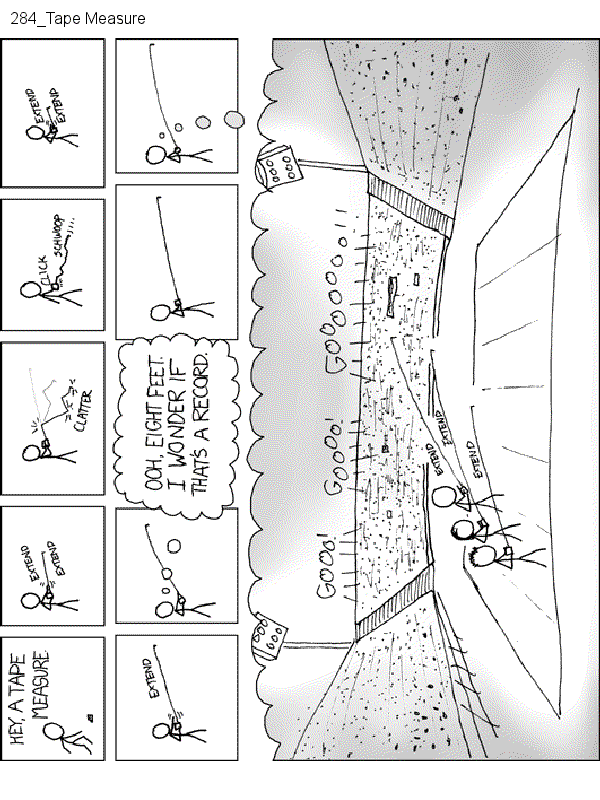 284_Tape Measure
HEY, A TAPE
MEASURE
EXTEND
EXTEND
CLATTER
CLICK
SCHWOOP
EXTEND
EXTEND
EXTEND
OOH, EIGHT FEET.
I WONDER IF
THAT'S A RECORD.
GOOO!
GOOOO!
GOOOOOOOOO!!
EXTEND
EXTEND
EXTEND